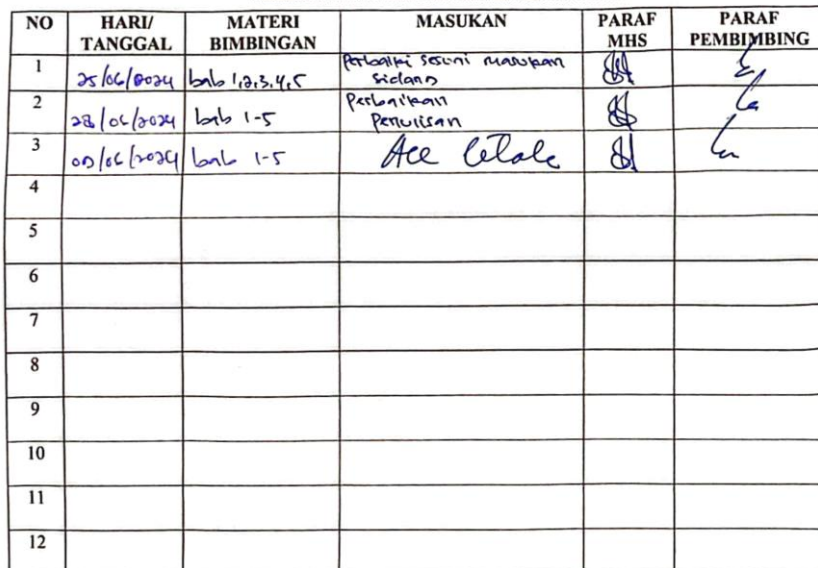 NO HARI/ TANGGAL MATERI BIMBINGAN MASUKAN PARAF MHS PARAF PEMBIMBING
1 25/06/2024 bab 1,2,3,4,5 Perbaiki sesuai masukan
sidang
2 28/06/2024 bab 1-5 Perbaikan
Penulisan
3 bab 1-5 Acc Cetak
4
5
6
7
8
9
10
11
12